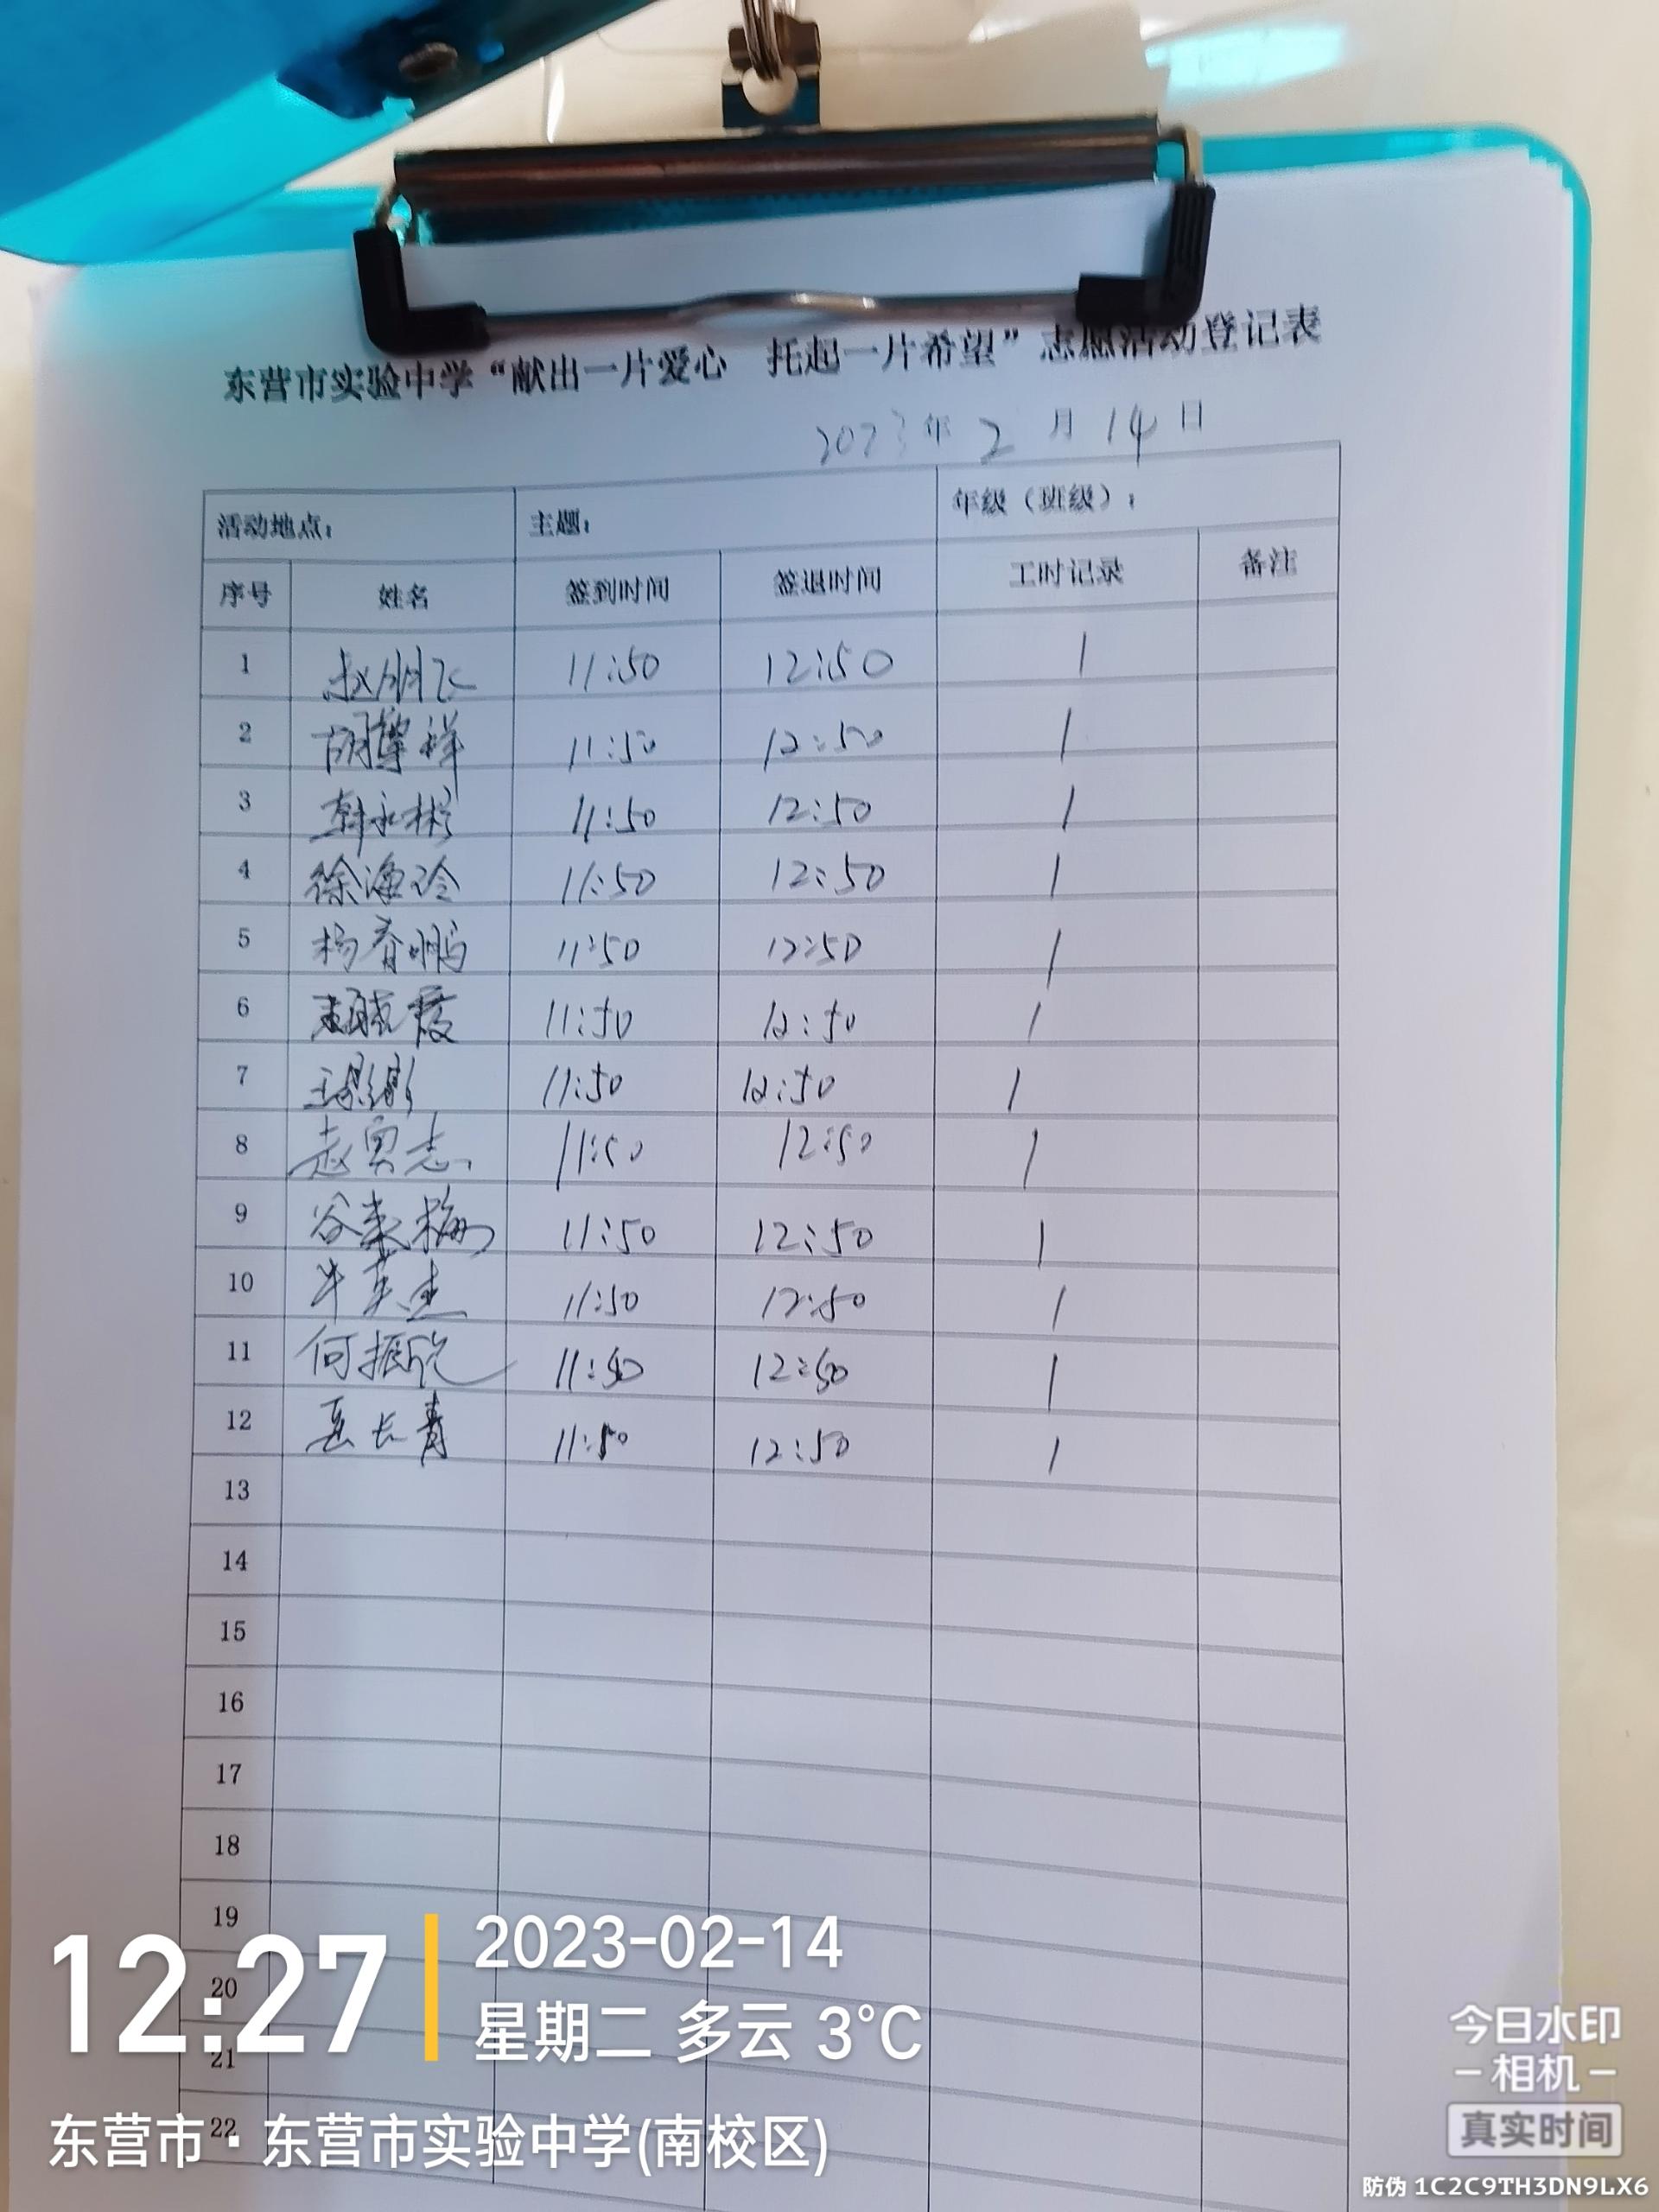 东营市实验中学“献出一片爱心 托起一片希望”志愿活动登记表
2023年 2 月 14 日
活动地点： 主题： 年级（班级）：
序号 姓名 签到时间 签退时间 工时记录 备注
1 赵朋飞 11:50 12:50 1
2 胡尊祥 11:50 12:50 1
3 韩永彬 11:50 12:50 1
4 徐海玲 11:50 12:50 1
5 杨春鹏 11:50 12:50 1
6 11:50 12:50 1
7 11:50 12:50 1
8 11:50 12:50 1
9 谷荣梅 11:50 12:50 1
10 牛英杰 11:50 12:50 1
11 何振欣 11:50 12:50 1
12 岳长青 11:50 12:50 1
13
14
15
16
17
18
19
20
21
22
12:27
2023-02-14
星期二 多云 3°C
东营市·东营市实验中学(南校区)
今日水印
-相机-
真实时间
防伪 1C2C9TH3DN9LX6